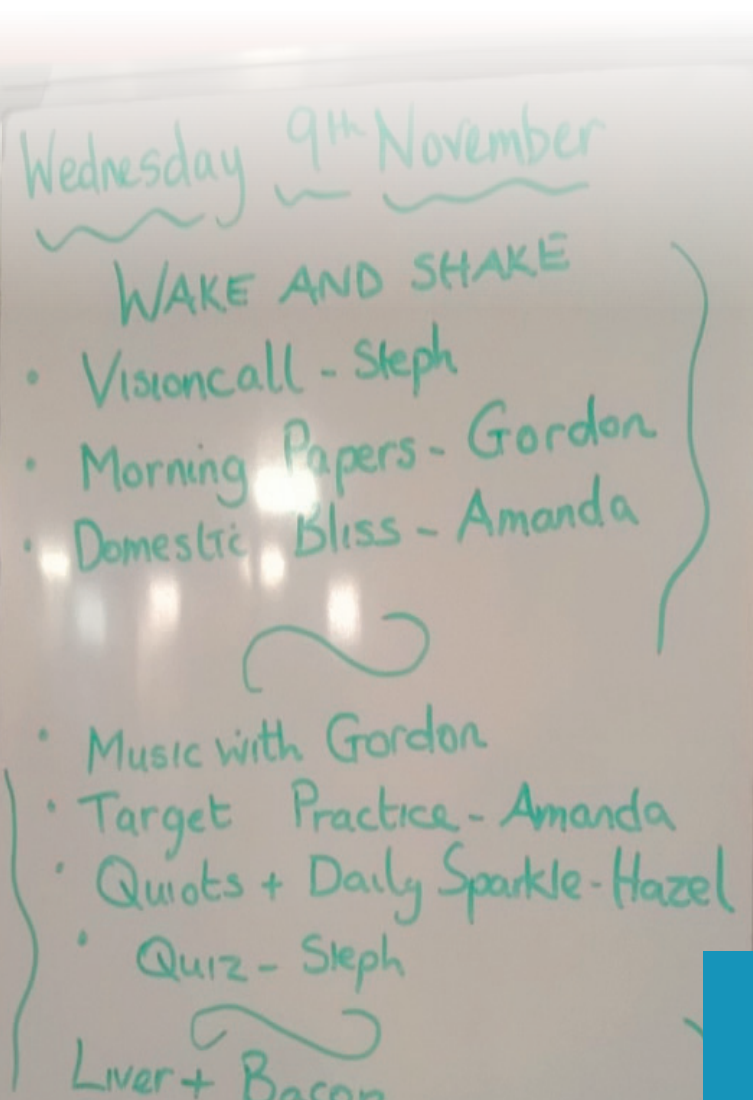 Wednesday 9th November
WAKE AND SHAKE
• Visioncall - Steph
• Morning Papers - Gordon
• Domestic Bliss - Amanda
• Music with Gordon
• Target Practice - Amanda
• Quiots + Daily Sparkle - Hazel
• Quiz - Steph
Liver + Bacon